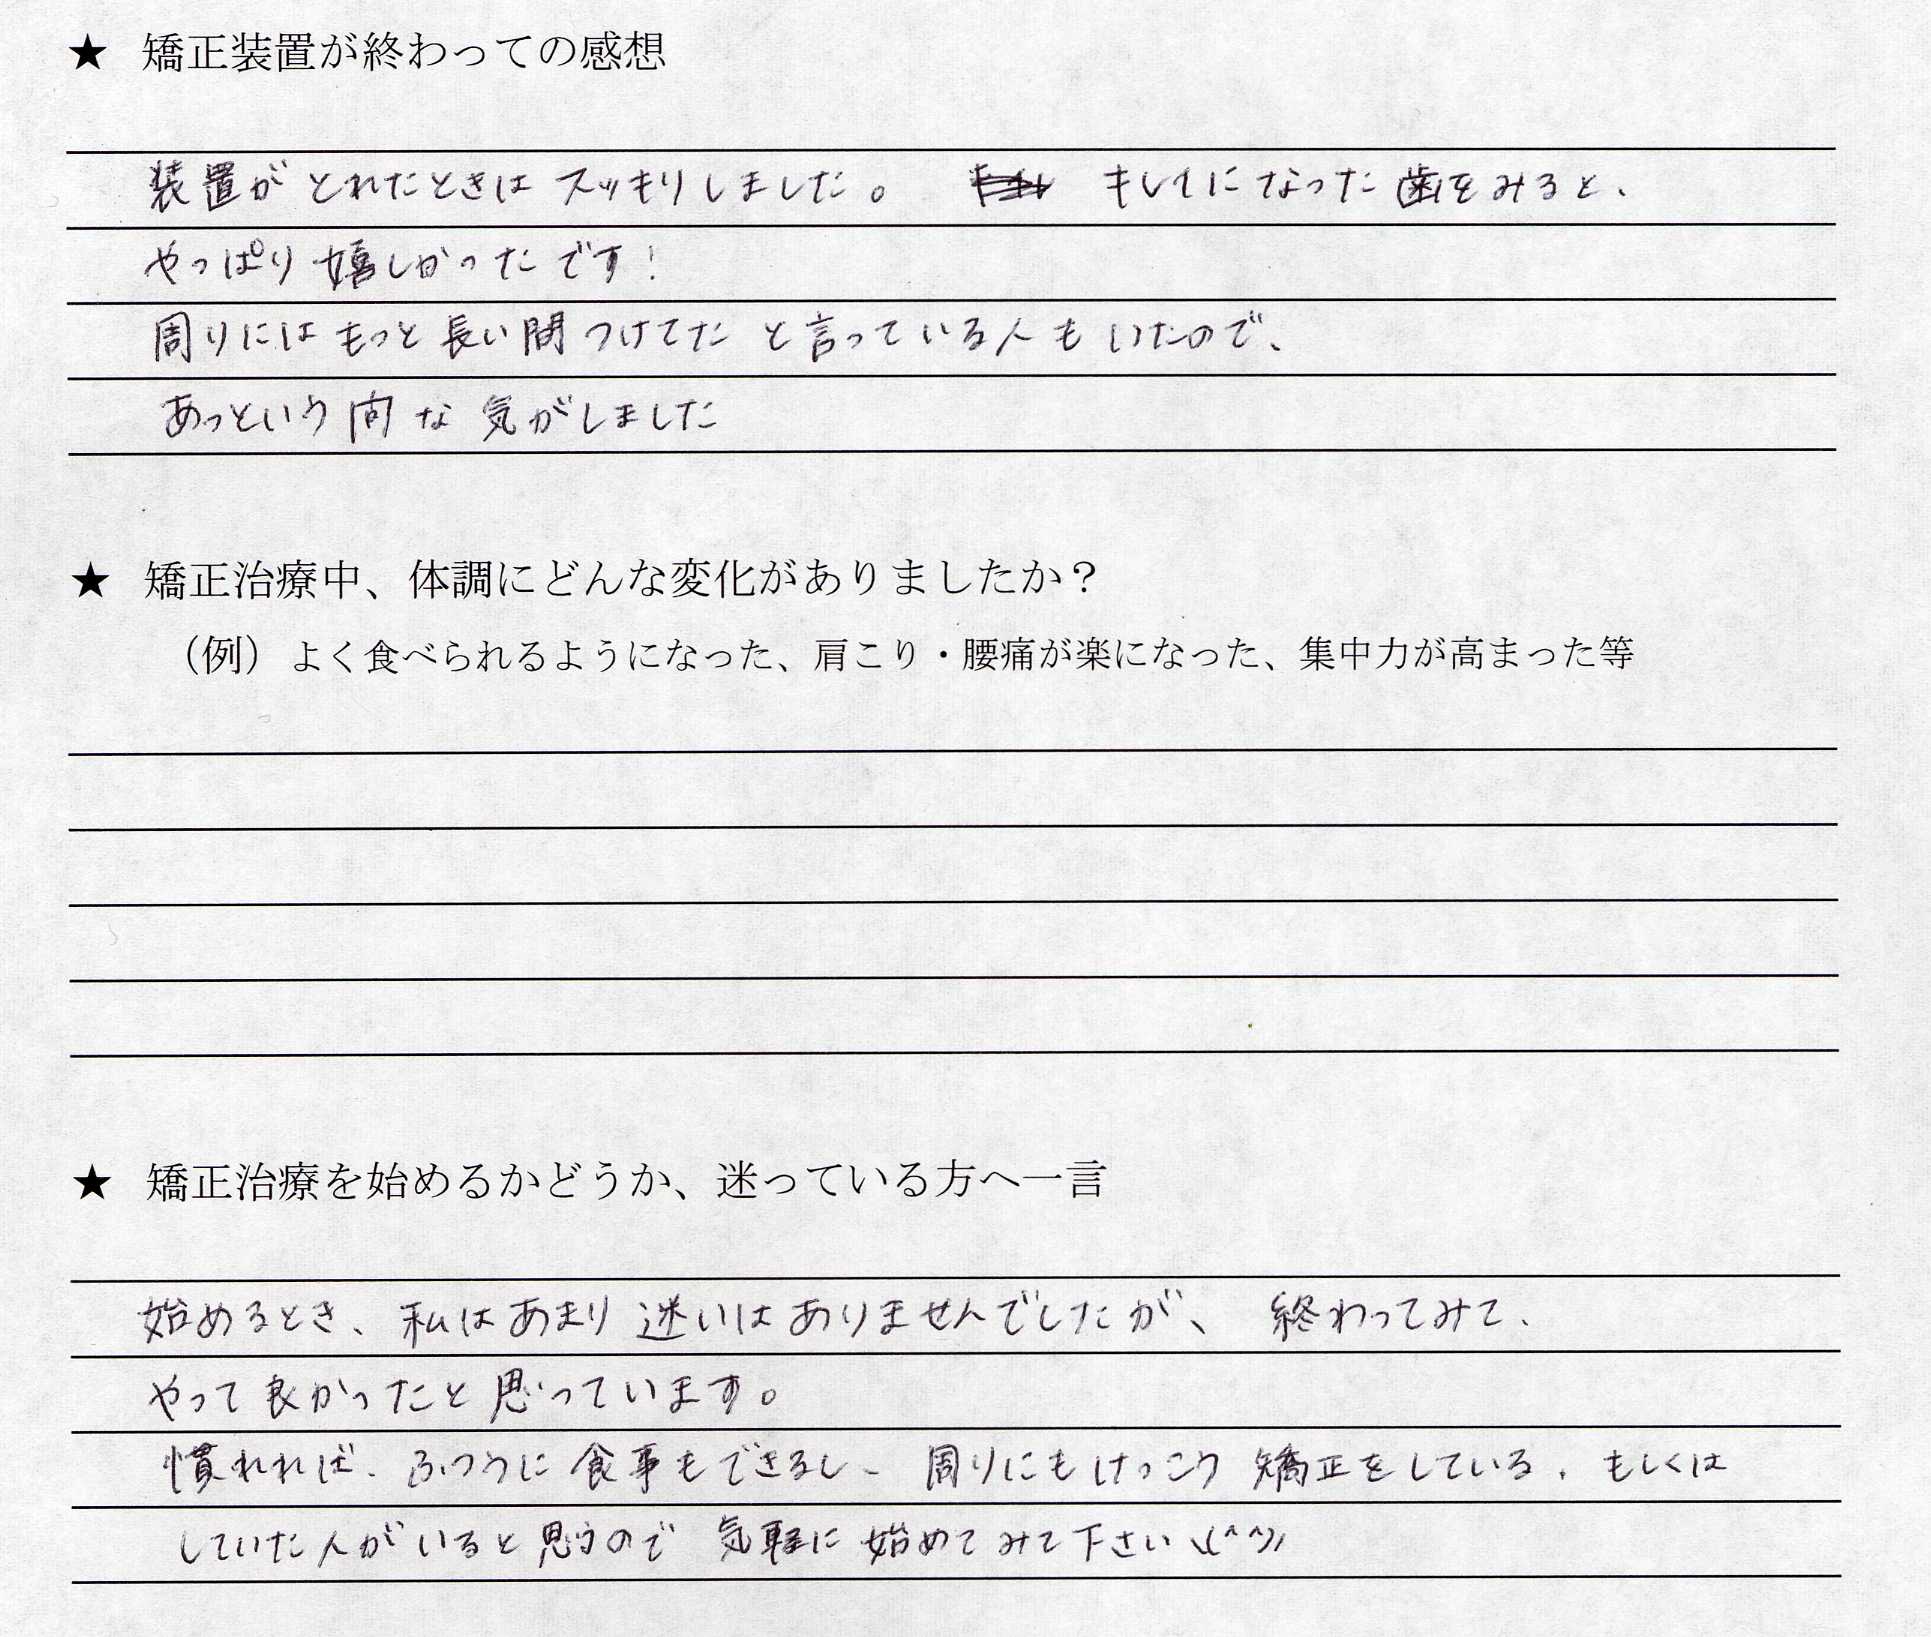 ★ 矯正装置が終わっての感想
装置がとれたときはスッキリしました。 キレイになった歯をみると、
やっぱり嬉しかったです!
周りにはもっと長い間つけてたと言っている人もいたので、
あっという間な気がしました
★ 矯正治療中、体調にどんな変化がありましたか？
（例）よく食べられるようになった、肩こり・腰痛が楽になった、集中力が高まった等
★ 矯正治療を始めるかどうか、迷っている方へ一言
始めるとき、私はあまり迷いはありませんでしたが、終わってみて、
やって良かったと思っています。
慣れれば、ふつうに食事もできるし、周りにもけっこう矯正をしている、もしくは
していた人がいると思うので気軽に始めてみて下さい\(^^)/